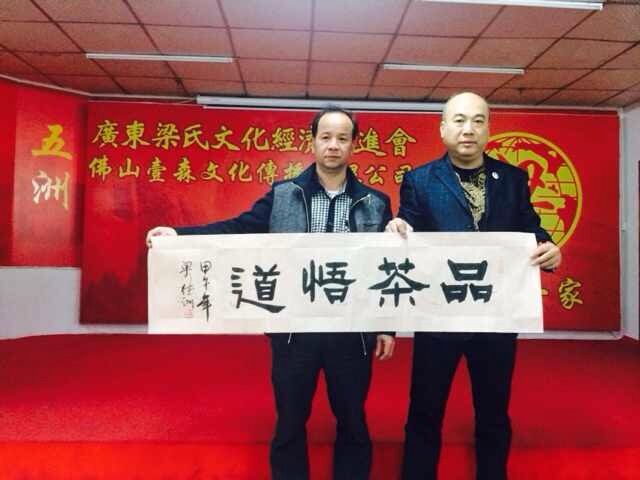 五洲
廣東梁氏文化經濟進會
佛山壹森文化傳播限公司
家
品茶悟道
甲午年